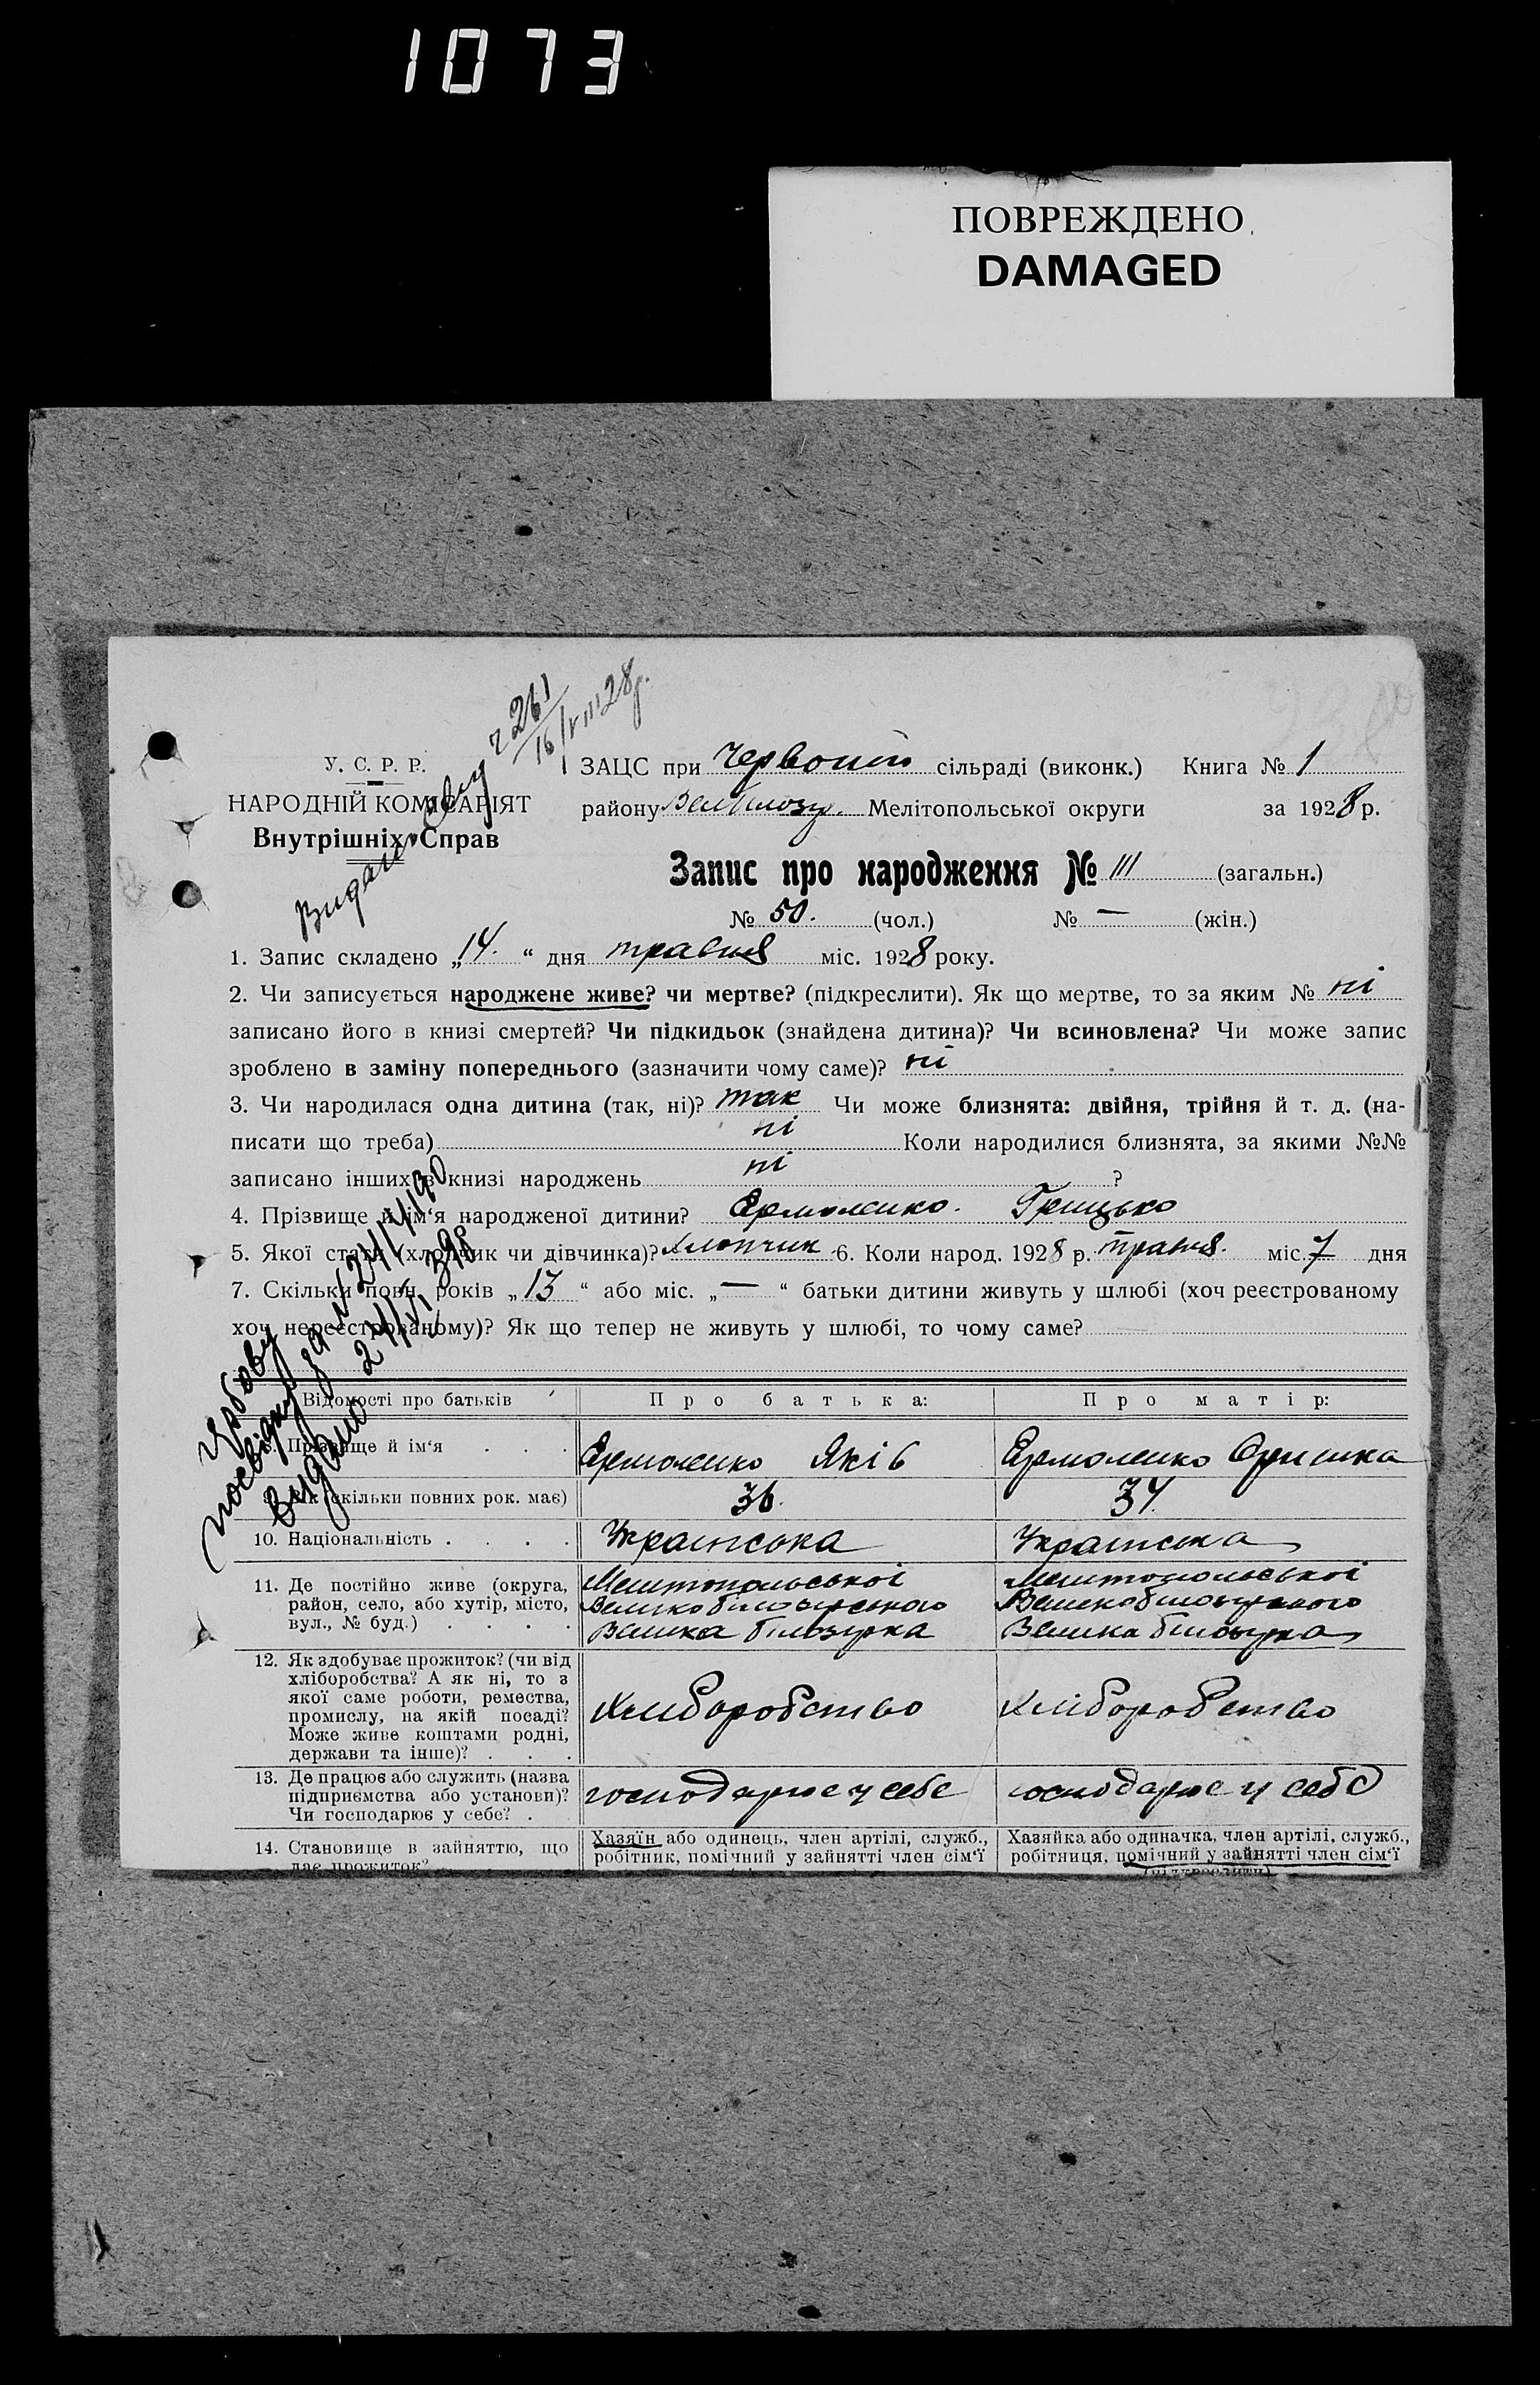 1073
ПОВРЕЖДЕНО
DAMAGED
261
16/VIII 28р.
У. С. Р. Р.
НАРОДНІЙ КОМІСАРІЯТ
Внутрішніх Справ
ЗАЦС при Червоній сільраді (виконк.) Книга № 1
району Велбілозер. Мелітопольської округи за 1928 р.
Запис про народження № 111 (загальн.)
№ 50. (чол.) № — (жін.)
1. Запис складено „14.“ дня травня міс. 1928 року.
2. Чи записується народжене живе? чи мертве? (підкреслити). Як що мертве, то за яким № ні
записано його в книзі смертей? Чи підкидьок (знайдена дитина)? Чи всиновлена? Чи може запис
зроблено в заміну попереднього (зазначити чому саме)? ні
3. Чи народилася одна дитина (так, ні)? так Чи може близнята: двійня, трійня й т. д. (на-
писати що треба) ні Коли народилися близнята, за якими №№
записано інших в книзі народжень ні ?
4. Прізвище й ім‘я народженої дитини? Єрмоленко. Грицько
5. Якої статі (хлопчик чи дівчинка)? Хлопчик 6. Коли народ. 1928 р. травня. міс. 7 дня
7. Скільки повн. років „13“ або міс. „—“ батьки дитини живуть у шлюбі (хоч реєстрованому
хоч нереєстрованому)? Як що тепер не живуть у шлюбі, то чому саме?
посвідку за № 24/IV
Видано 24/VI
Відомості про батьків Про батька: Про матір:
8. Прізвище й ім‘я . . . Єрмоленко Яків Єрмоленко Оришка
9. Вік (скільки повних рок. має) 36. 34.
10. Національність . . . . Українська Українська
11. Де постійно живе (округа, Мелитопольської Мелитопольської
район, село, або хутір, місто, Великобілозерського Великобілозерського
вул., № буд.) . . . . Велика білозерка Велика білозерка
12. Як здобуває прожиток? (чи від
хліборобства? А як ні, то з
якої саме роботи, ремества,
промислу, на якій посаді? Хліборобство Хліборобство
Може живе коштами родні,
держави та інше)? . . .
13. Де працює або служить (назва
підприємства або установи)? господарює у себе господарює у себе
Чи господарює у себе? .
14. Становище в зайняттю, що Хазяїн або одинець, член артілі, служб., Хазяйка або одиначка, член артілі, служб.,
дає прожиток? робітник, помічний у зайнятті член сім‘ї робітниця, помічний у зайнятті член сім‘ї
(підкреслити)